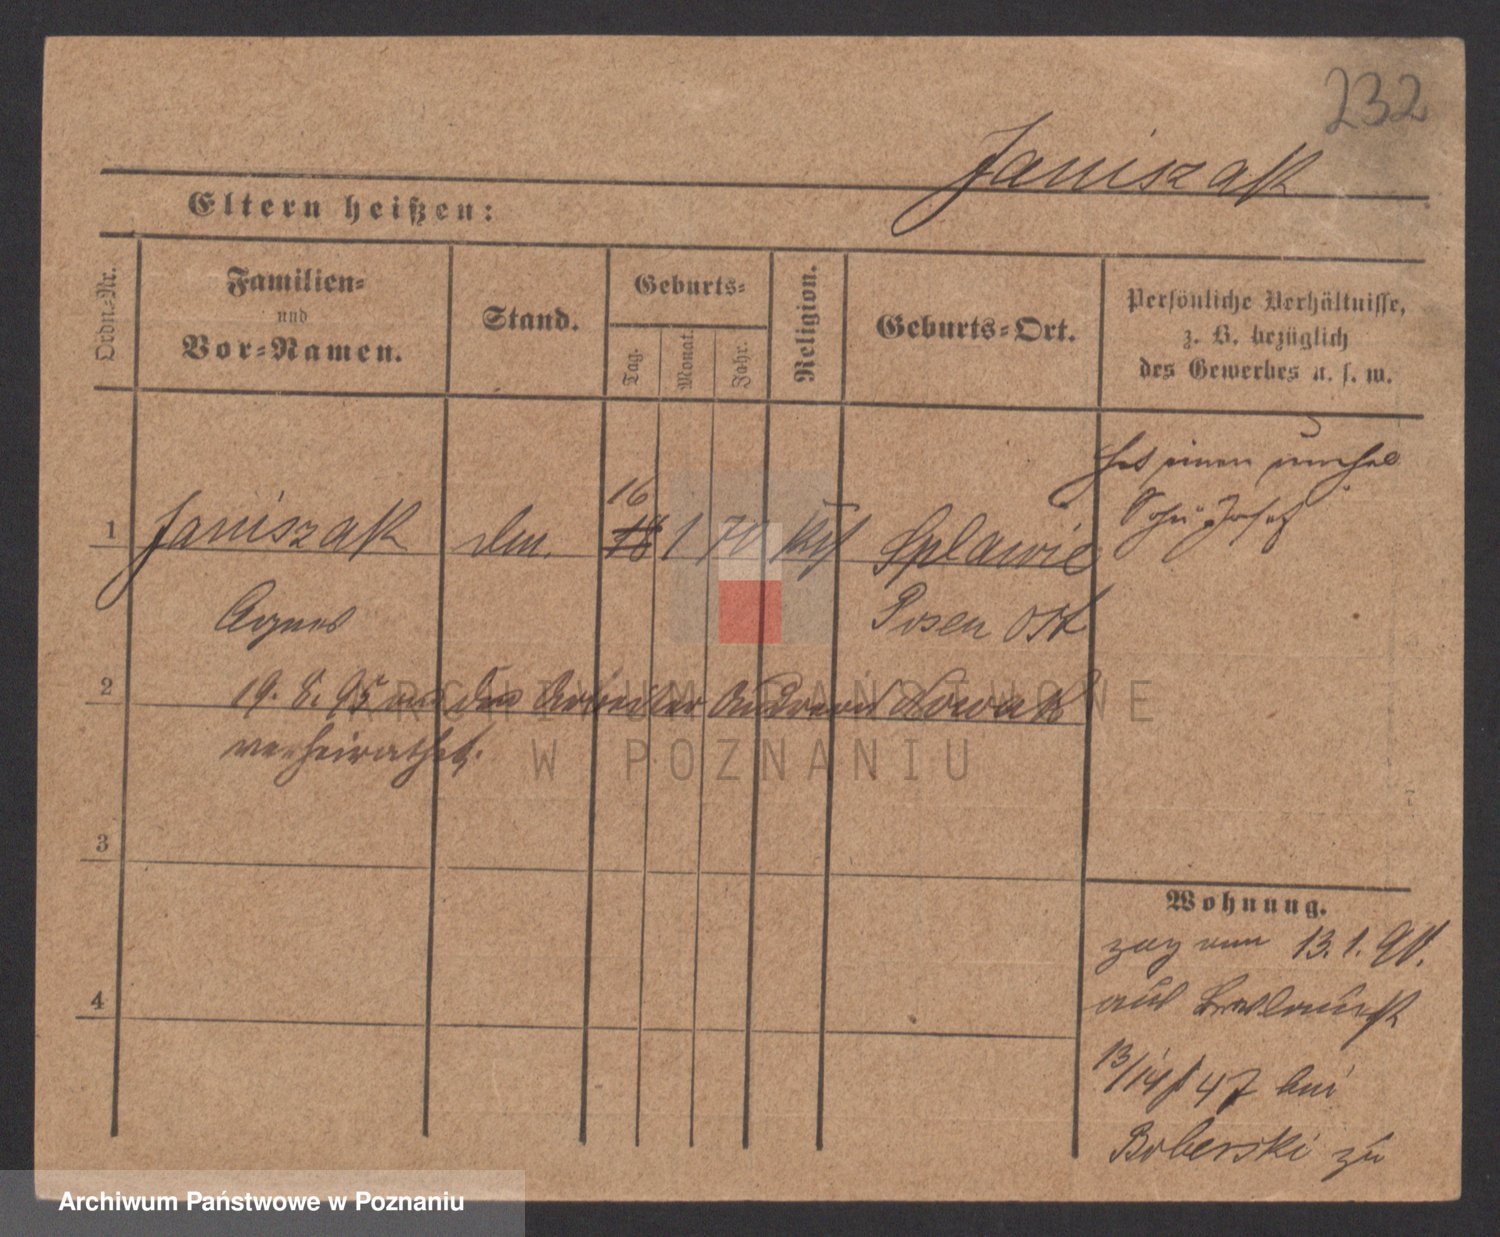 232
Janiszak
Eltern heißen:
Ordn.-Nr.
Familien-
und
Vor-Namen.
Stand.
Geburts-
Tag.
Monat.
Jahr.
Religion.
Geburts-Ort.
Persönliche Verhältnisse,
z. B. bezüglich
des Gewerbes u. s. w.
hat einen unehel
Sohn Josef
16
1 Janiszak 18 1 70 kth Splawie
Agnes Posen Ost
2 19. 8. 95 an den Arbeiter Andreas Nowak
verheirathet.
3
4
Wohnung.
zog vom 13. 1. 91.
aus
13/14 47 bei
Boberski zu
ARCHIWUM PAŃSTWOWE
W POZNANIU
Archiwum Państwowe w Poznaniu